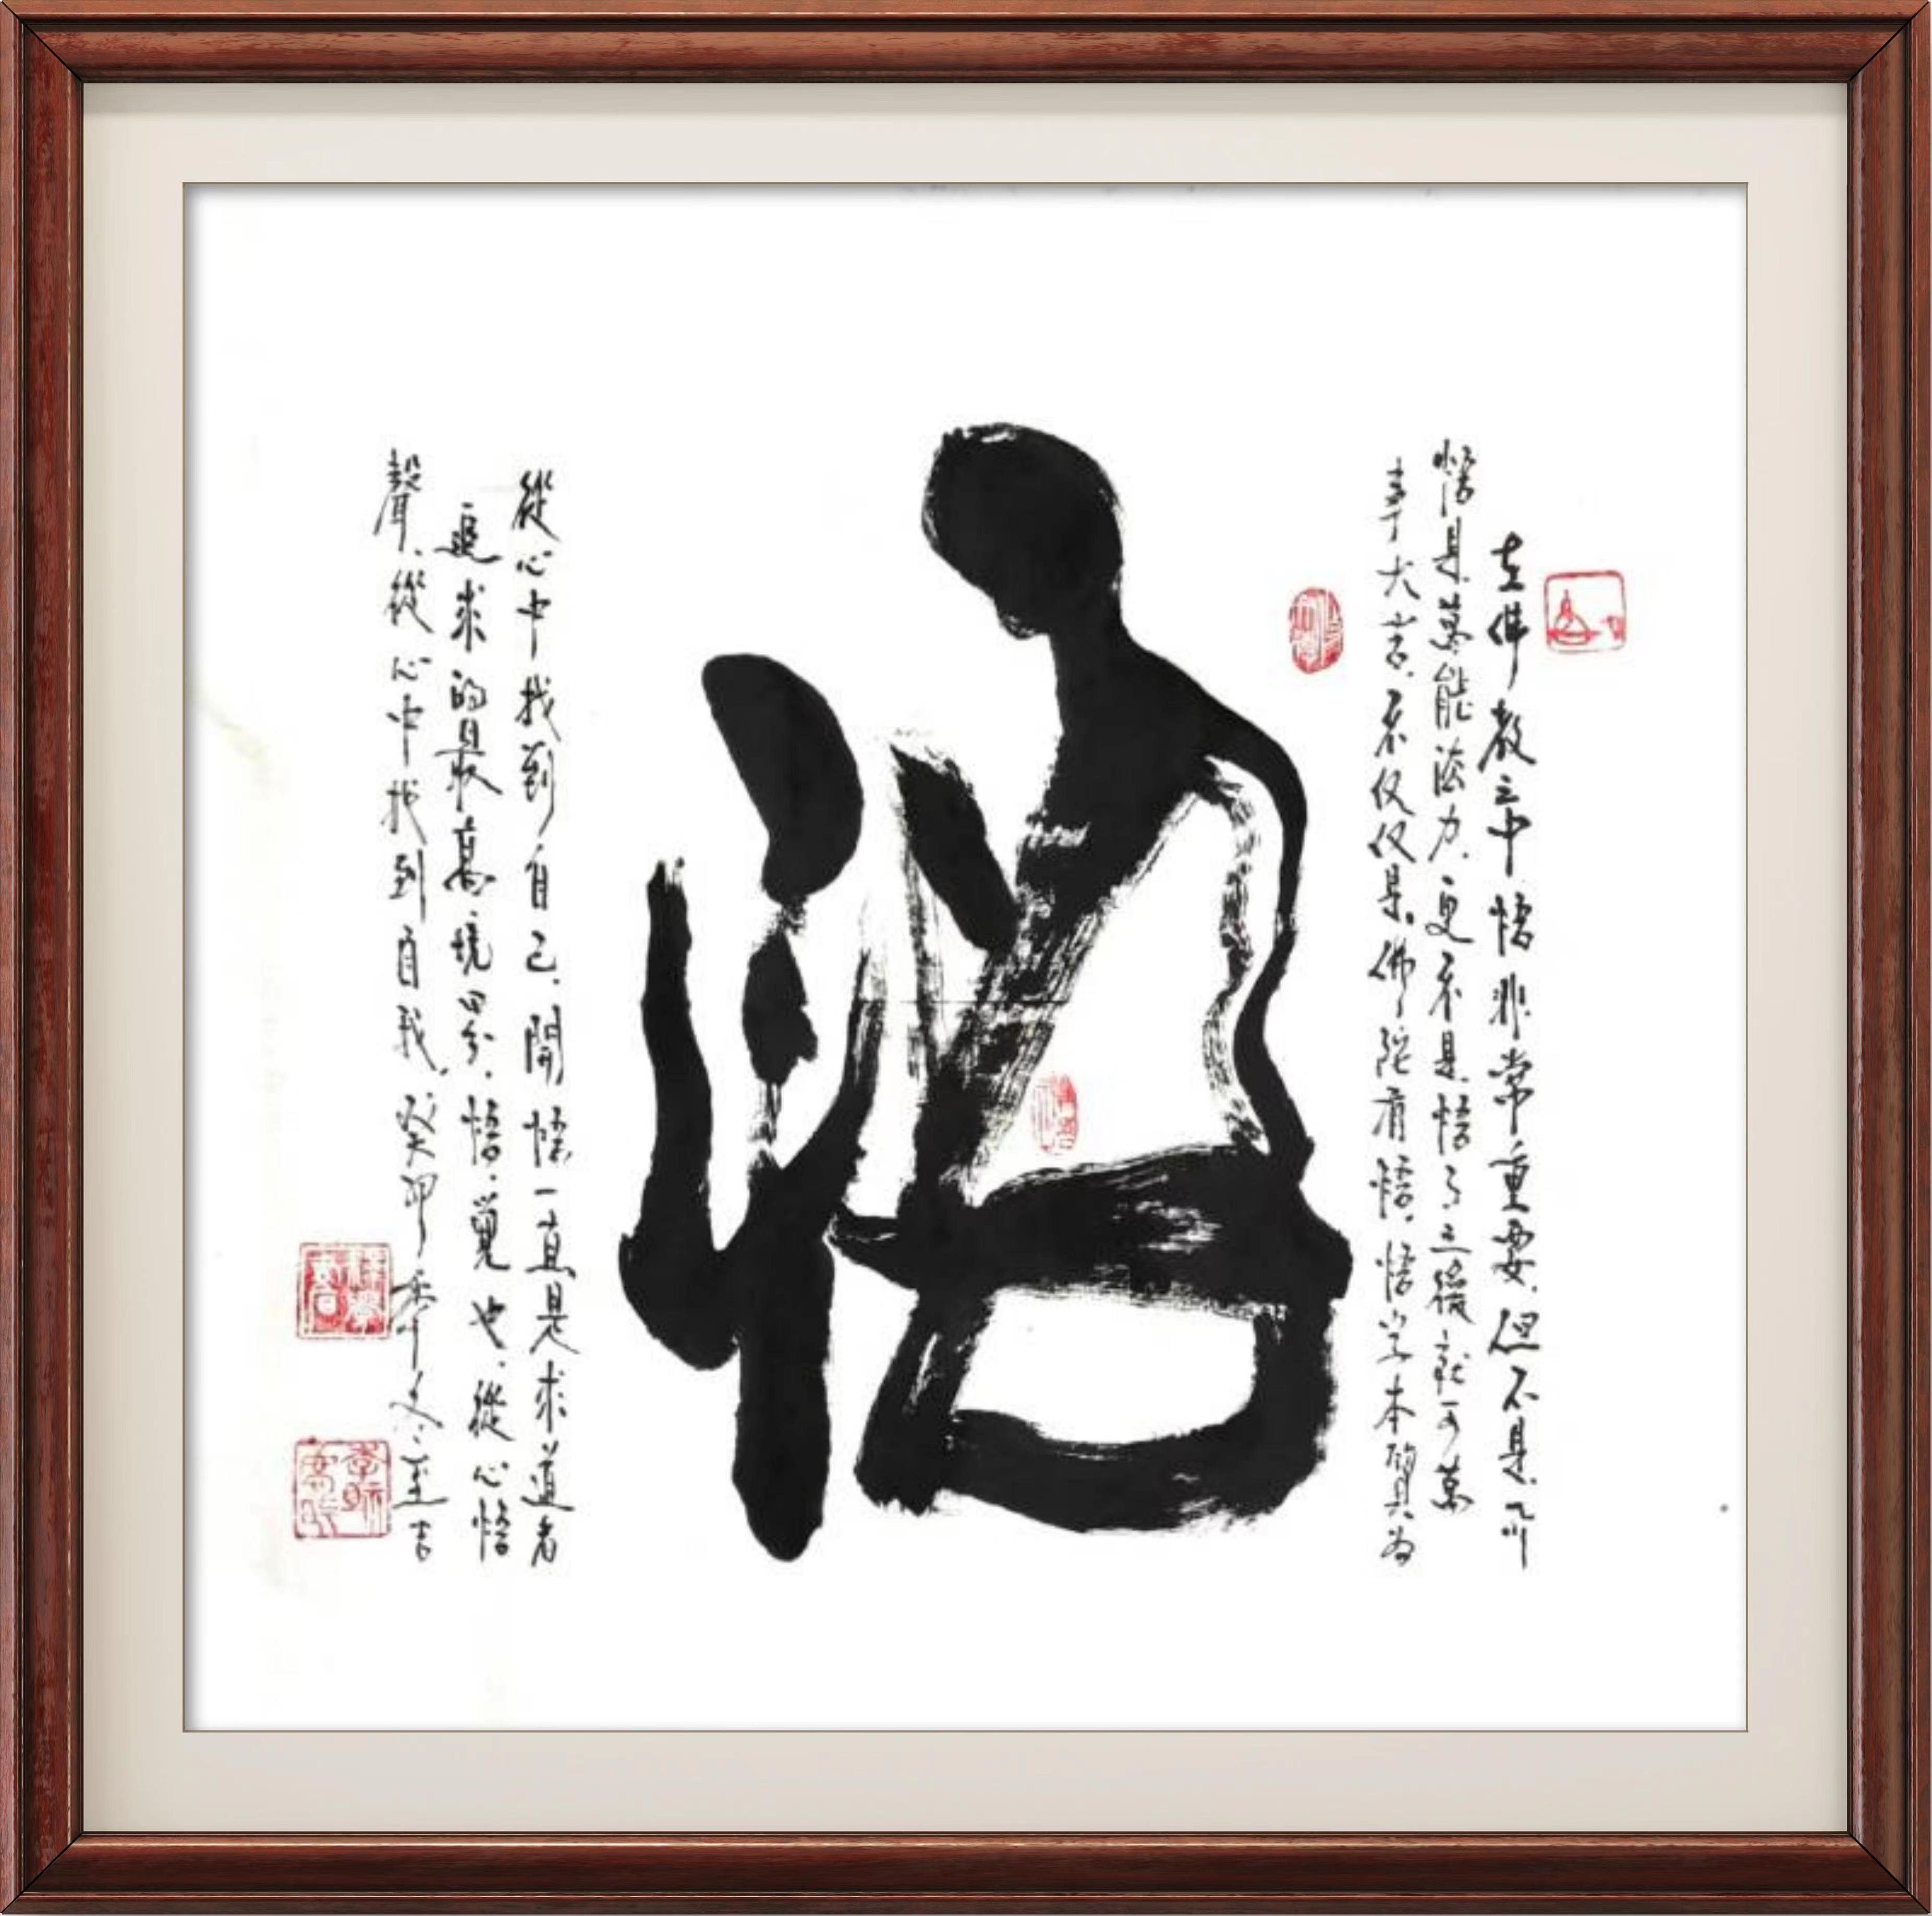 在佛教之中悟非常重要但不是
悟是萬能法力更不是悟了之後就可萬
事大吉不仅仅是佛陀有悟悟字本質為
悟
從心中找到自己開悟一直是求道者
追求的最高境界悟覺也從心悟
聲從心中找到自我癸卯年冬至吉